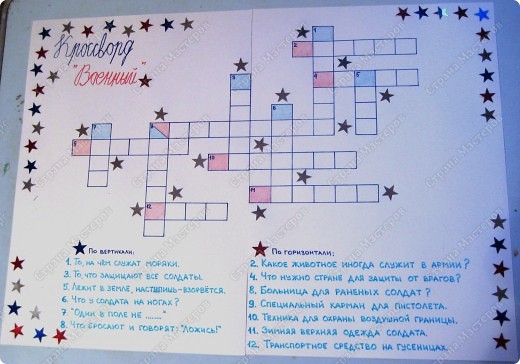 Кроссворд
"Военный"
По вертикали:
1. То, на чём служат моряки.
3. То, что защищают все солдаты.
5. Лежит в земле, наступишь-взорвётся.
6. Что у солдата на ногах?
7. "Один в поле не ......."
8. Что бросают и говорят: "Ложись!"
По горизонтали:
2. Какое животное иногда служит в армии?
4. Что нужно стране для защиты от врагов?
8. Больница для раненых солдат?
9. Специальный карман для пистолета.
10. Техника для охраны воздушной границы.
11. Зимняя верхняя одежда солдата.
12. Транспортное средство на гусеницах.